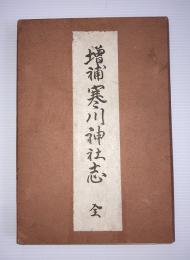 增補寒川神社志 全